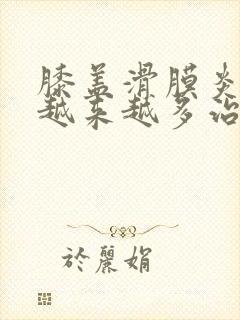 膝盖滑膜炎
越来越多治
於麗娟